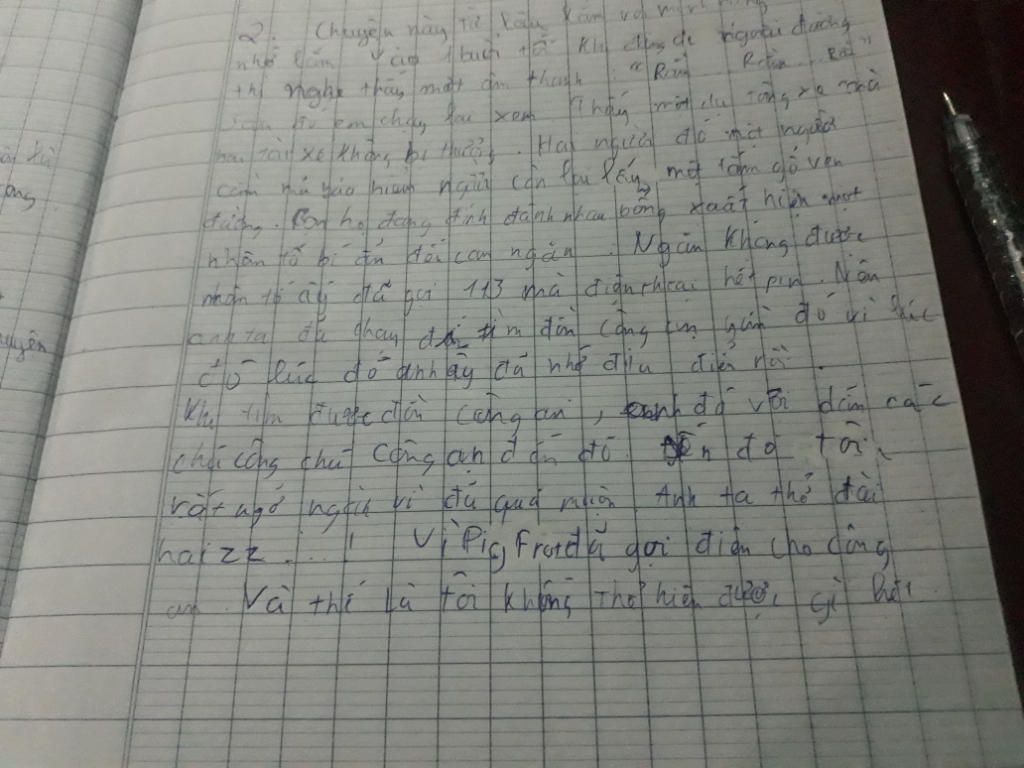 2. Chuyện này từ lâu lắm và mình không
nhớ lắm vào 1 buổi tối khi đang đi ngoài đường
thì nghe thấy một âm thanh " Rầm Rầm Rầm"
em chạy lại xem. Thấy một vụ tông xe mà
hai tài xế không bị thương. Hai người đó một người
cầm mũ bảo hiểm người còn lại lấy một tấm gỗ ven
đường. Còn họ đang định đánh nhau bỗng xuất hiện một
nhân tố bí ẩn tới can ngăn. Ngăn không được
nhân tố ấy đã gọi 113 mà điện thoại hết pin. Nên
anh ta đã thay đổi tìm đồn công an gần đó vì
lúc đó anh ấy đã nhớ
Khi tìm được đồn công an, anh đó vội dẫn các
chú công an đến đó. Đến đó rồi,
rất ngỡ ngàng vì đã quá muộn. Anh ta thở dài
haizz....! Vì Pig Frot đã gọi điện cho công
an. Và thế là tôi không thể hiện được gì hết.